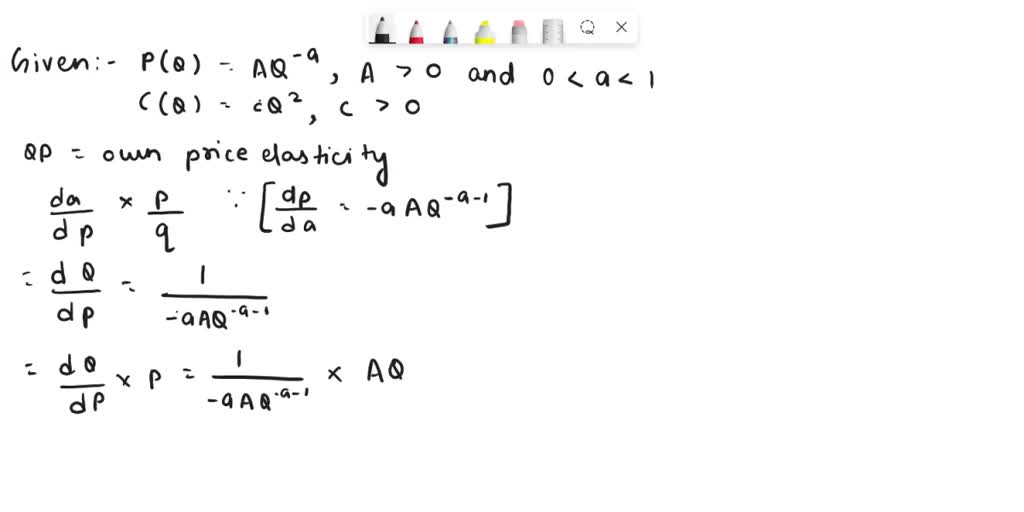 Given:- P(Q) = AQ^-a, A > 0 and 0 < a < 1
C(Q) = cQ², c > 0
QP = own price elasticity
da/dp × p/q ∵ [dp/da = -aAQ^-a-1]
= dQ/dp = 1/-aAQ^-a-1
= dQ/dp × p = 1/-aAQ^-a-1 × AQ